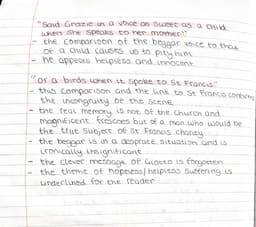 "Said Grazie in a voice as sweet as a child
when she speaks to her mother"
- the comparison of the beggar voice to that
of a child causes us to pity him
- he appears helpless and innocent.
"Or a birds when it spoke to St Francis"
- this comparison and the link to St Francis confirms
the incongruity of the scene
- the real memory is not of the church and
magnificent frescoes but of a man who would be
the true subject of St Francis charity
- the beggar is in a desprate situation and is
ironically insignificant
- the clever message of Giotto is forgotten
- the theme of hopeless/helpless suffering is
underlined for the reader